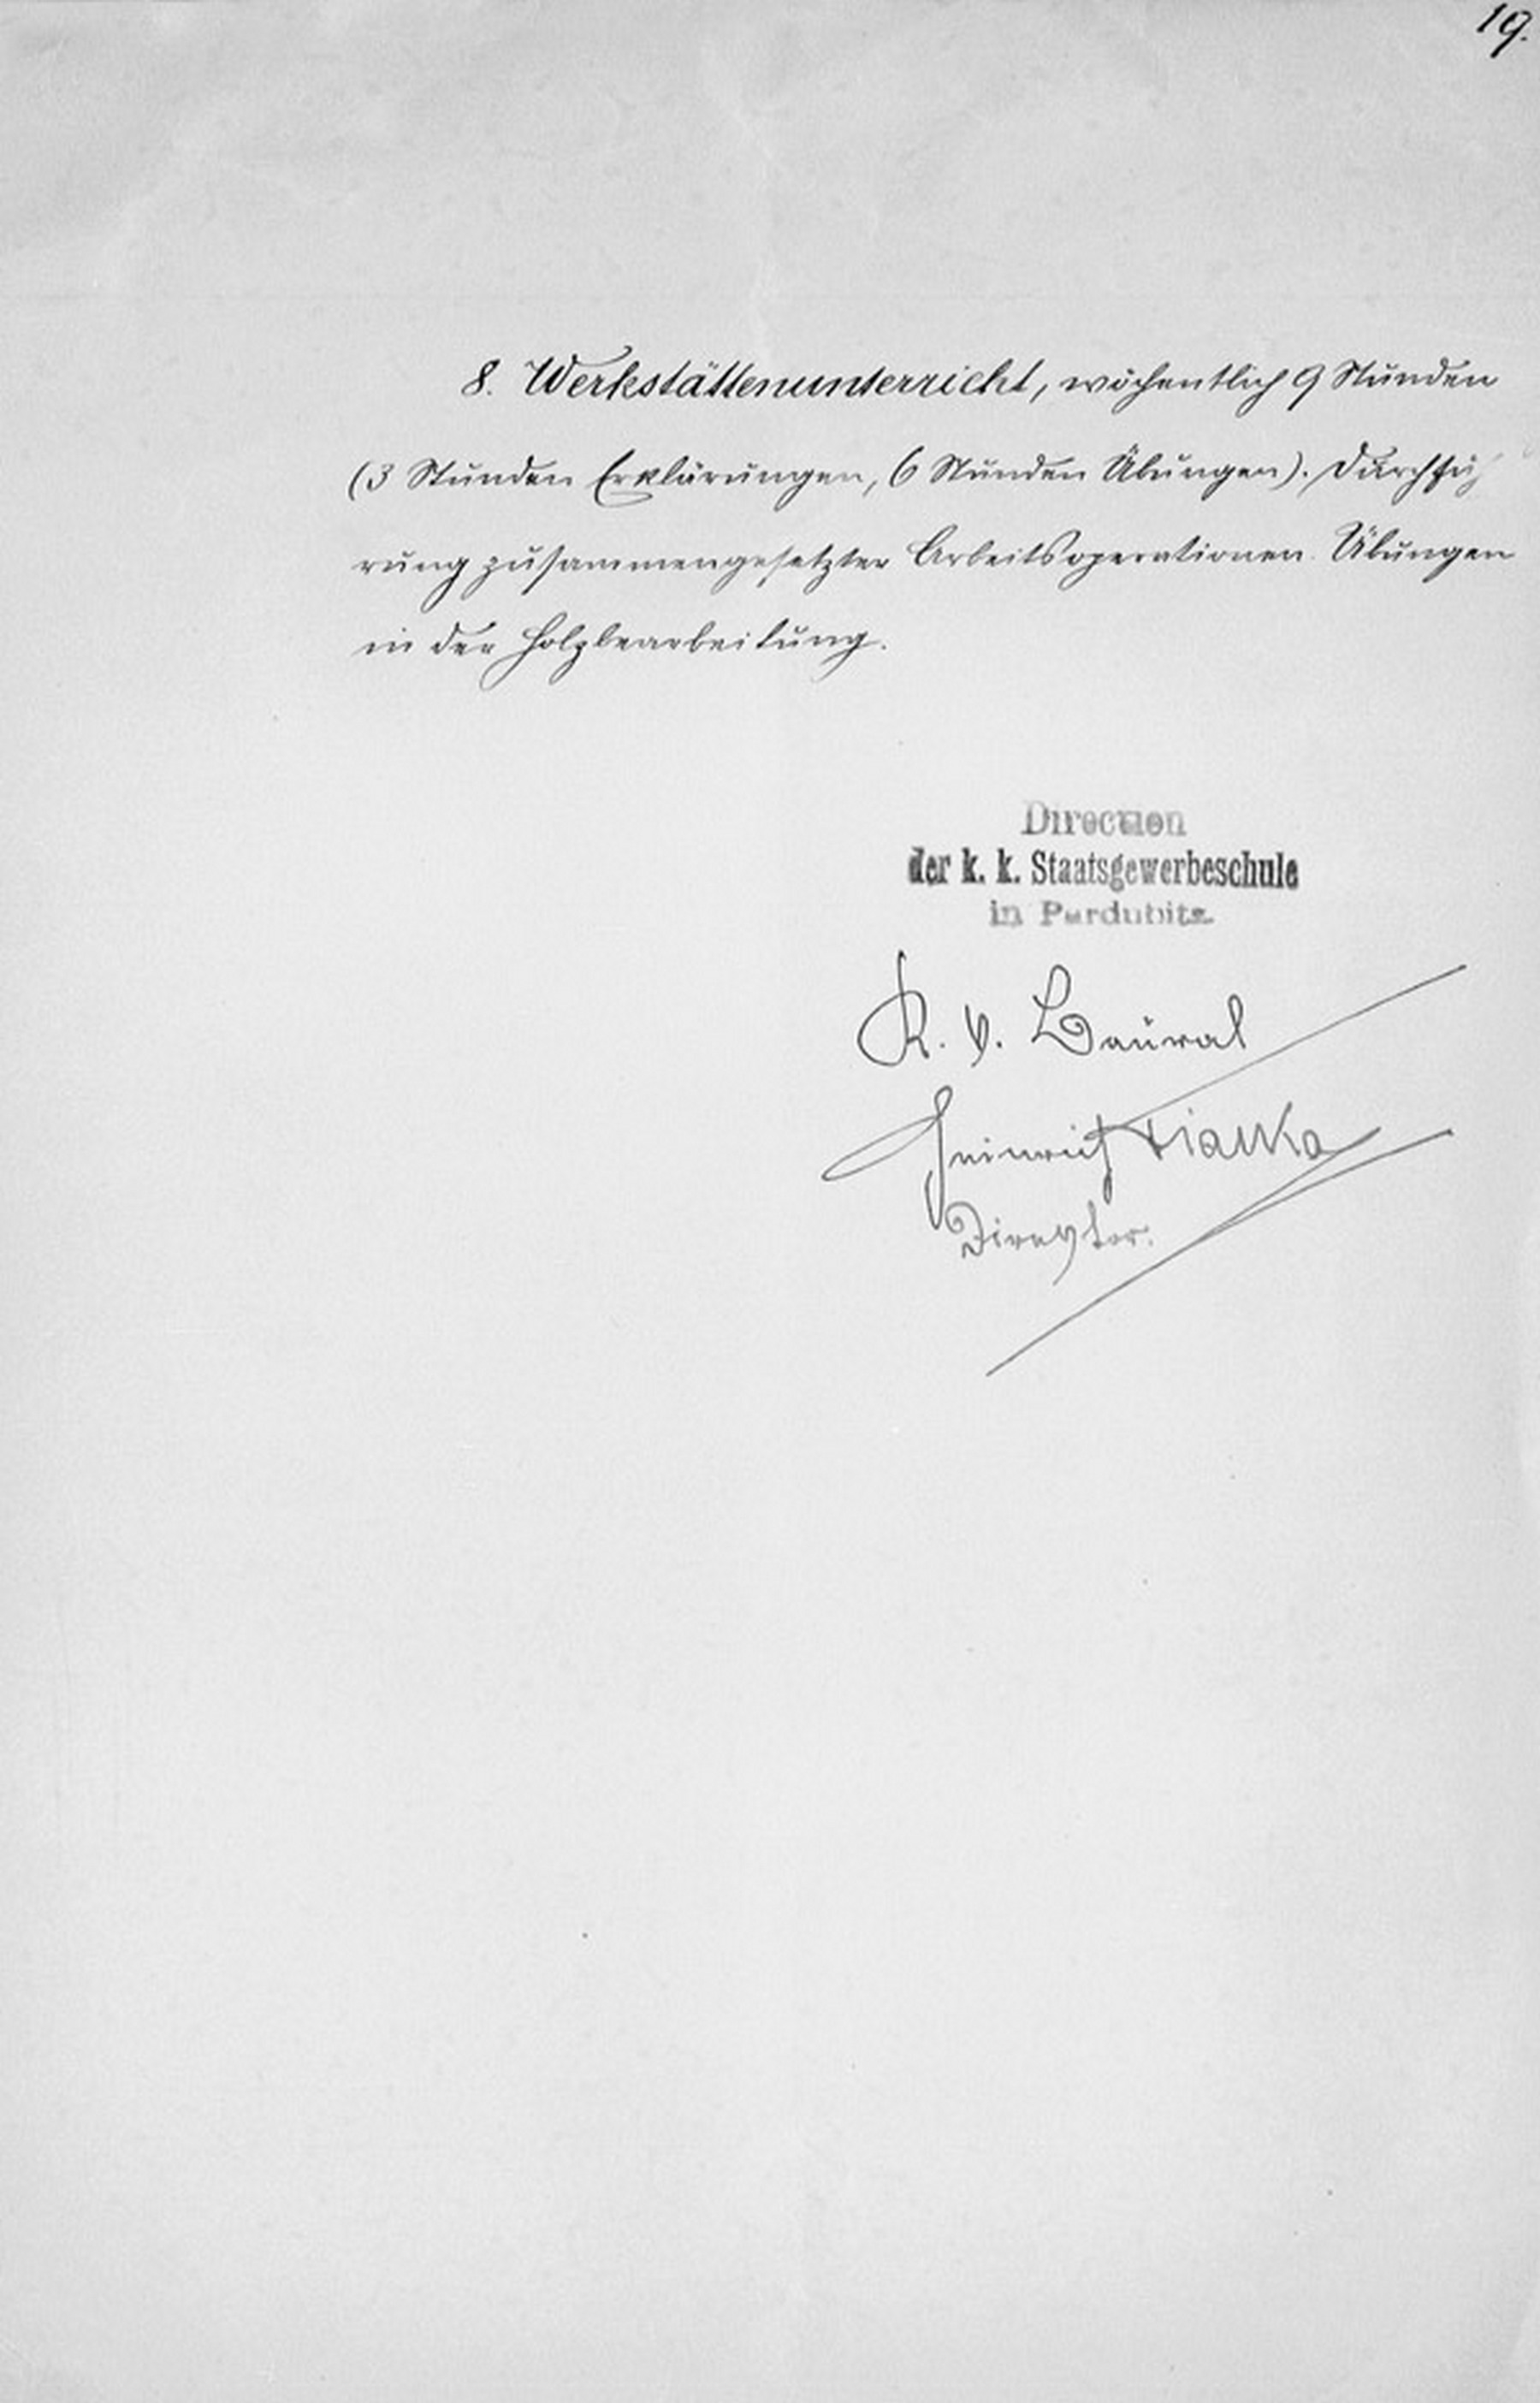 19.
8. Werkstättenunterricht, wöchentlich 9 Stunden
(3 Stunden Erklärungen, 6 Stunden Übungen). Durchfüh
rung zusammengesetzter Arbeitsoperationen. Übungen
in der Holzbearbeitung.
Direction
der k. k. Staatsgewerbeschule
in Pardubitz.
K. v.
Heinrich
Direktor.